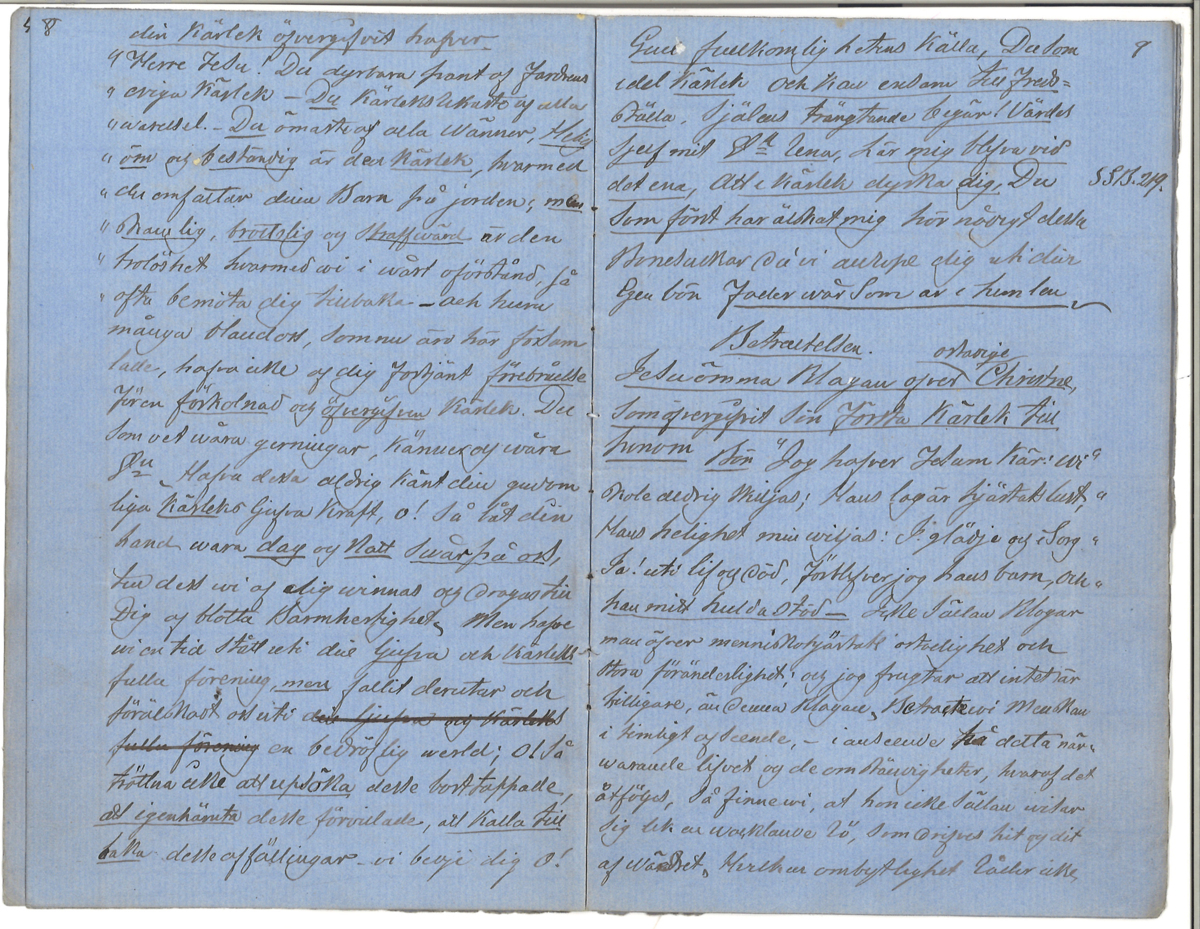 8
din Kärlek öfvergifvit hafver
"Herre Jesu! Du dyrbara pant af Fardrens
" eviga Kärlek – Du Kärleksrikaste af alla
" warelser. – Du ömaste af alla Wänner, Helig
" öm och beständig är den Kärlek, hvarmed
" du omfattar dina Barn på jorden; men
" Skamlig, brottslig og straffwärd är den
" trolöshet hvarmed wi i wårt oförstånd, så
" ofta bemöta dig tillbaka – och huru
många bland oss, som nu äro här försam
lade, hafva icke af dig förtjänt förebråelse
För en förkolnad og öfvergifven Kärlek. Du
som vet wåra gerningar, Känner og wåra
Hafva dessa aldrig känt din gudom
liga Kärleks ljufva Kraft, O! Så låt din
hand wara dag og Natt swår på oss,
till dess wi af dig winnas og dragas till
Dig af blotta Barmhertighet, Men hafve
wi en tid stått uti din ljufva och Kärleks
fulla förening, men fallit derutar och
förälskadt oss uti din ljufva og Kärleks
fulla förening en bedröflig werld; O! Så
tröttna icke att upsöka desse borttappade,
att igenhämta desse förvillade, att Kalla till
baka desse affällingar – vi bedje dig O!
9
Gud fullkomlighetens Källa, Du som
idel Kärlek och kan ensam tillfreds=
ställa, Själens trängtande begär! Wärdes
sjelf mit Ena, lär mig blifva vid
det ena, Att i Kärlek dyrka dig, Du
S.S.B. 219.
som först har älskat mig hör nådigt dessa
Bönesuckar då vi anrope dig uti din
Egen bön Fader wår Som är i himlen
Betraktelsen.
Jesu ömma Klagan öfver Christne,
som öfvergifvit sin Första Kärlek till
honom Bön "Jag hafver Jesum Kär: wi "
skole aldrig skiljas; Hans lag är hjärtats lust, "
Hans helighet min wiljas: I glädje og i Sorg "
Ja! uti lif og död, Förblifver jag hans barn, och "
han mitt hulda stöd – Icke sällan klagar
man öfver menniskohjärtats ostadighet och
stora föränderlighet; og jag frugtar att intet är
billigare, än denna Klagan. Betracte wi Menskan
i timligt afseende, – i anseende på detta när=
warande lifvet og de omständigheter, hvaraf det
åtföljes, Så finne wi, at hon icke sällan wisar
sig lik en wacklande Rö, som drifves hit og dit
af wädret. Hvilken ombytlighet råder icke